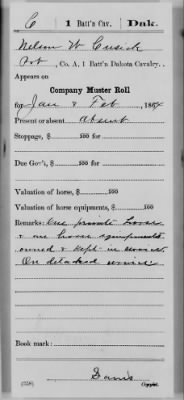 C | 1 Batt's Cav. | Dak.
Nelson W Cusick
Pvt, Co. A, 1 Batt'n Dakota Cavalry.
Appears on
Company Muster Roll
for Jan & Feb, 1864
Present or absent Absent
Stoppage, $ 100 for
Due Gov't, $ 100 for
Valuation of horse, $ 100
Valuation of horse equipments, $ 100
Remarks: One private horse
& one horse equipments
owned & kept in service.
On detached service.
Book mark:
(358)
Davis
Copyist.